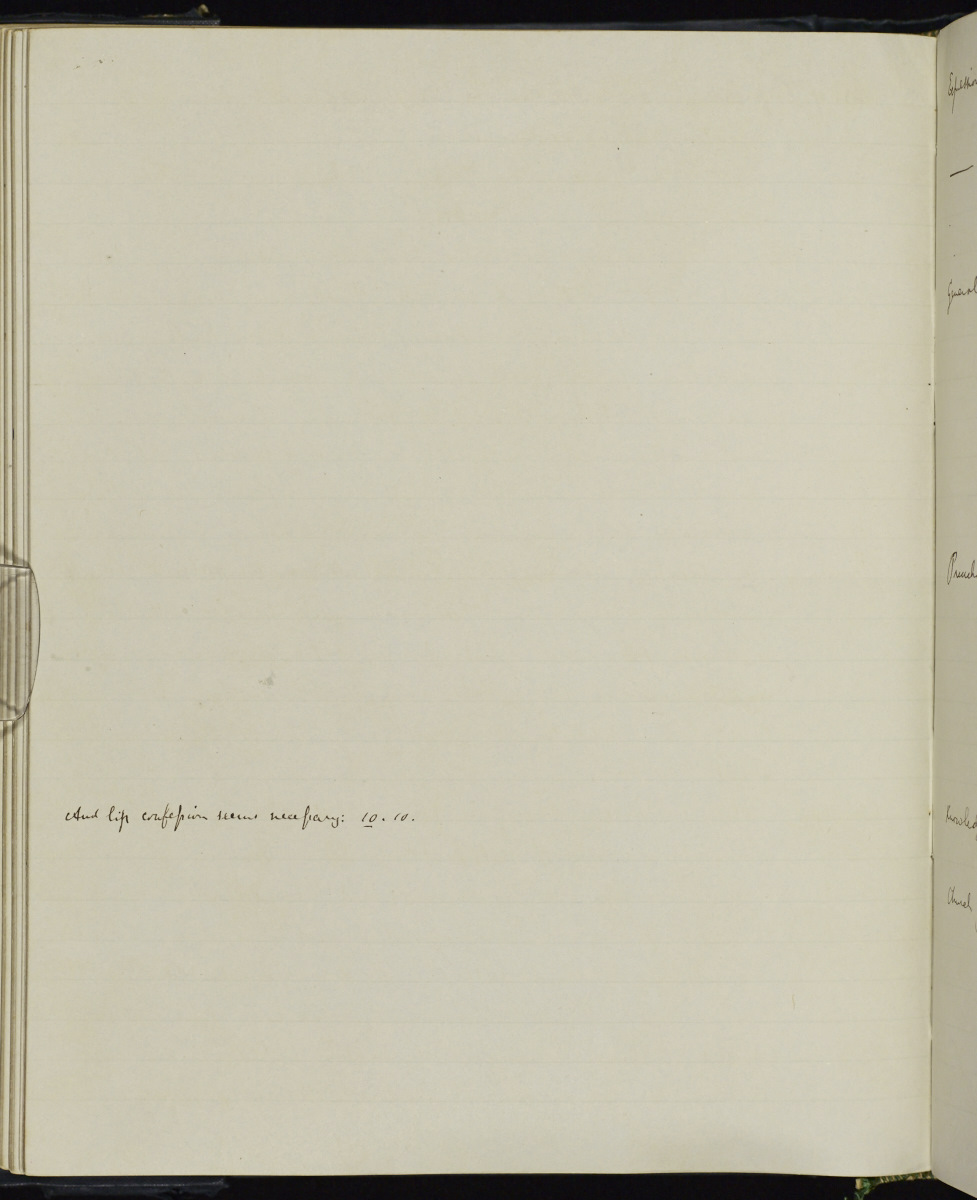 And lip confession seems necessary: 10. 10.
Expression
General
Preach
Knowled
Church